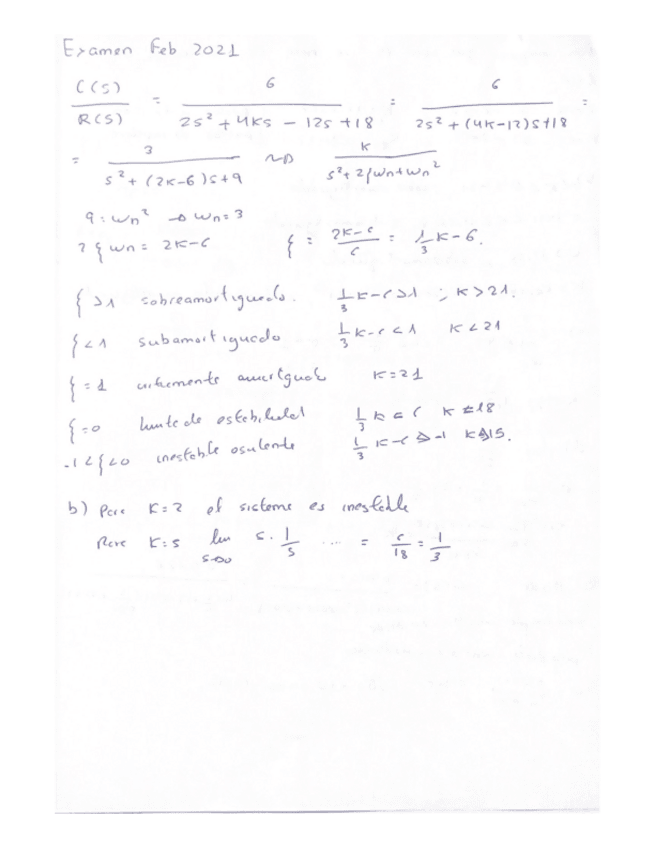 Examen Feb 2021
C(s)/R(s) = 6/(2s² + 4Ks - 12s + 18) = 6/(2s² + (4K-12)s + 18) =
= 3/(s² + (2K-6)s + 9) ~> K/(s² + 2ξwn + wn²)
9 = wn² -> wn = 3
2ξwn = 2K-6 ξ = (2K-6)/6 = 1/3 K - 6.
ξ > 1 sobreamortiguado. 1/3 K-6 > 1 ; K > 21.
ξ < 1 subamortiguado 1/3 K-6 < 1 K < 21
ξ = 1 K = 21
ξ = 0 limite de estabilidad 1/3 K = 6 K = 18
-1 < ξ < 0 inestable 1/3 K-6 > -1 K > 15.
b) Para K = 2 el sistema es inestable
Para K = 5 lim s→0 s · 1/s ... = 6/18 = 1/3